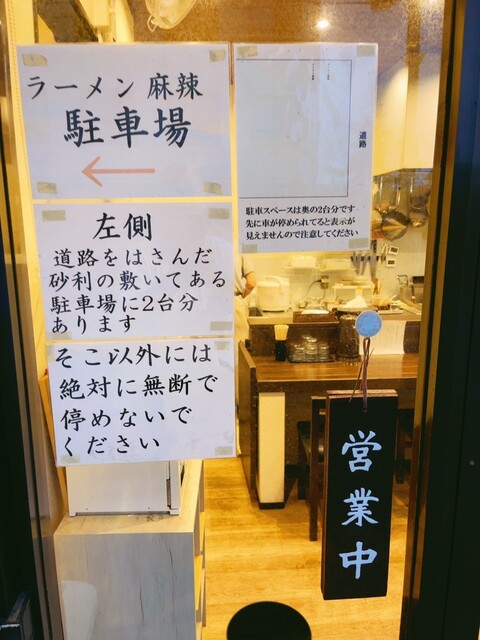 ラーメン 麻辣
駐車場
左側
道路をはさんだ
砂利の敷いてある
駐車場に2台分
あります
そこ以外には
絶対に無断で
停めないで
ください
道路
駐車スペースは奥の2台分です
先に車が停められてると表示が
見えませんので注意してください
営業中